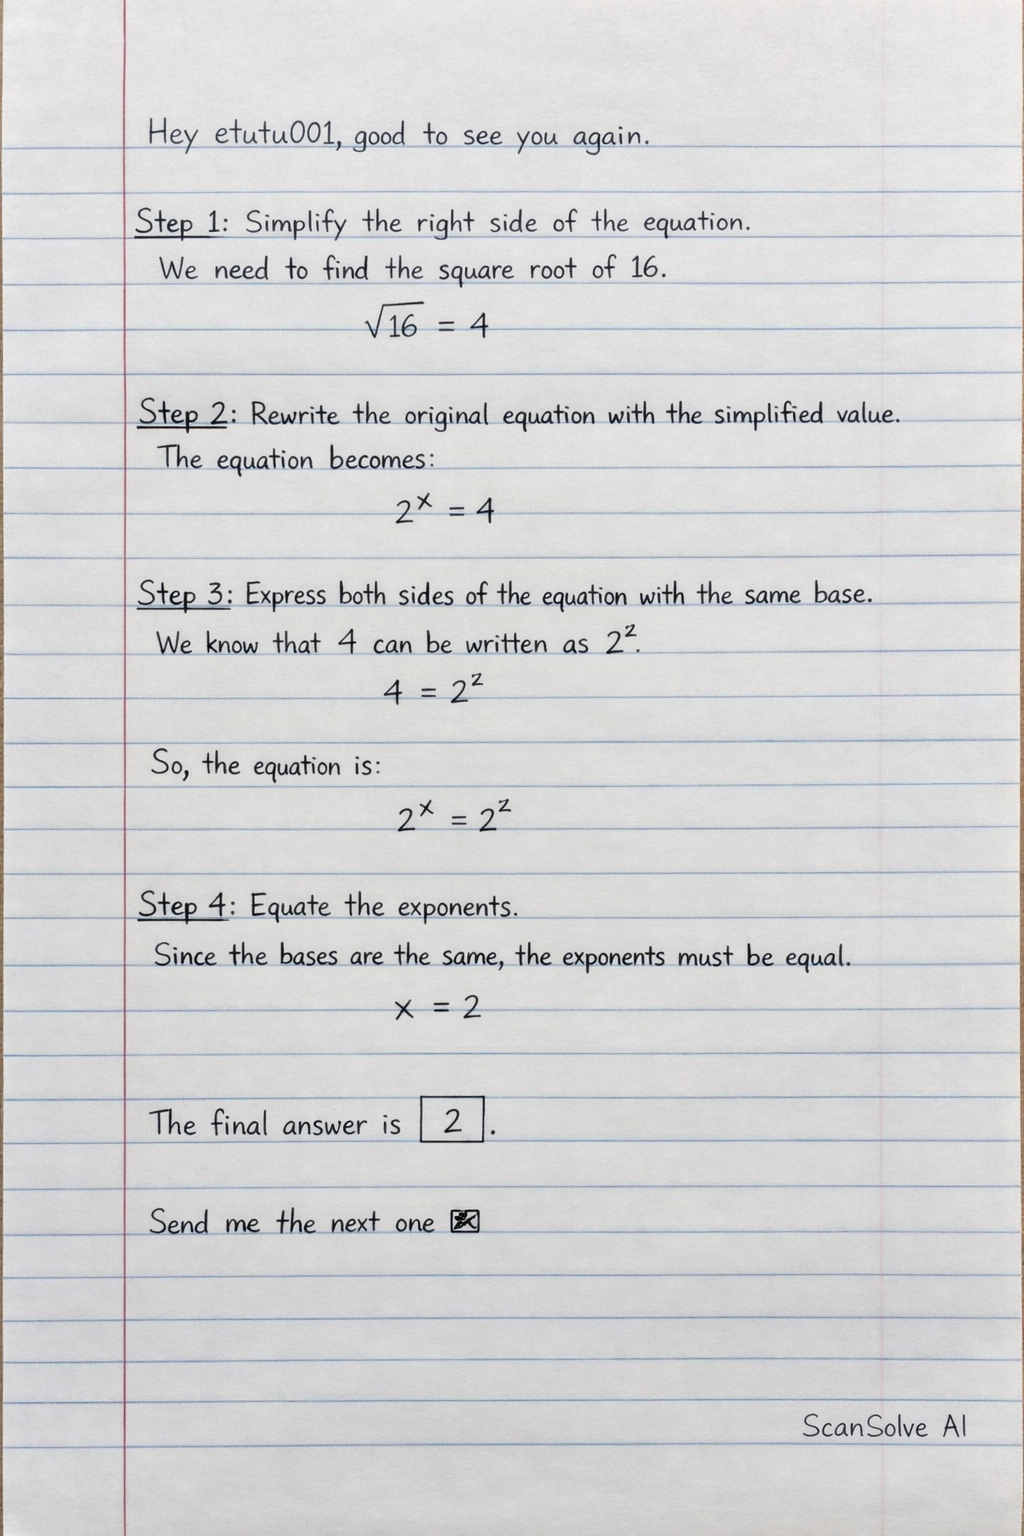 Hey etutu001, good to see you again.
Step 1: Simplify the right side of the equation.
We need to find the square root of 16.
√16 = 4
Step 2: Rewrite the original equation with the simplified value.
The equation becomes:
2ˣ = 4
Step 3: Express both sides of the equation with the same base.
We know that 4 can be written as 2².
4 = 2²
So, the equation is:
2ˣ = 2²
Step 4: Equate the exponents.
Since the bases are the same, the exponents must be equal.
x = 2
The final answer is 2.
Send me the next one
ScanSolve AI